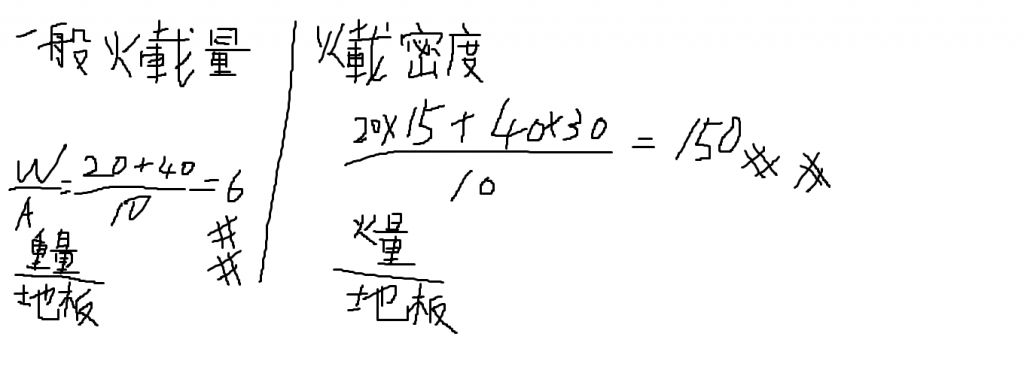 一般火載量
W/A = 20+40/10 = 6 ##
重量/地板
火載密度
20×15+40×30/10 = 150 ##
火量/地板